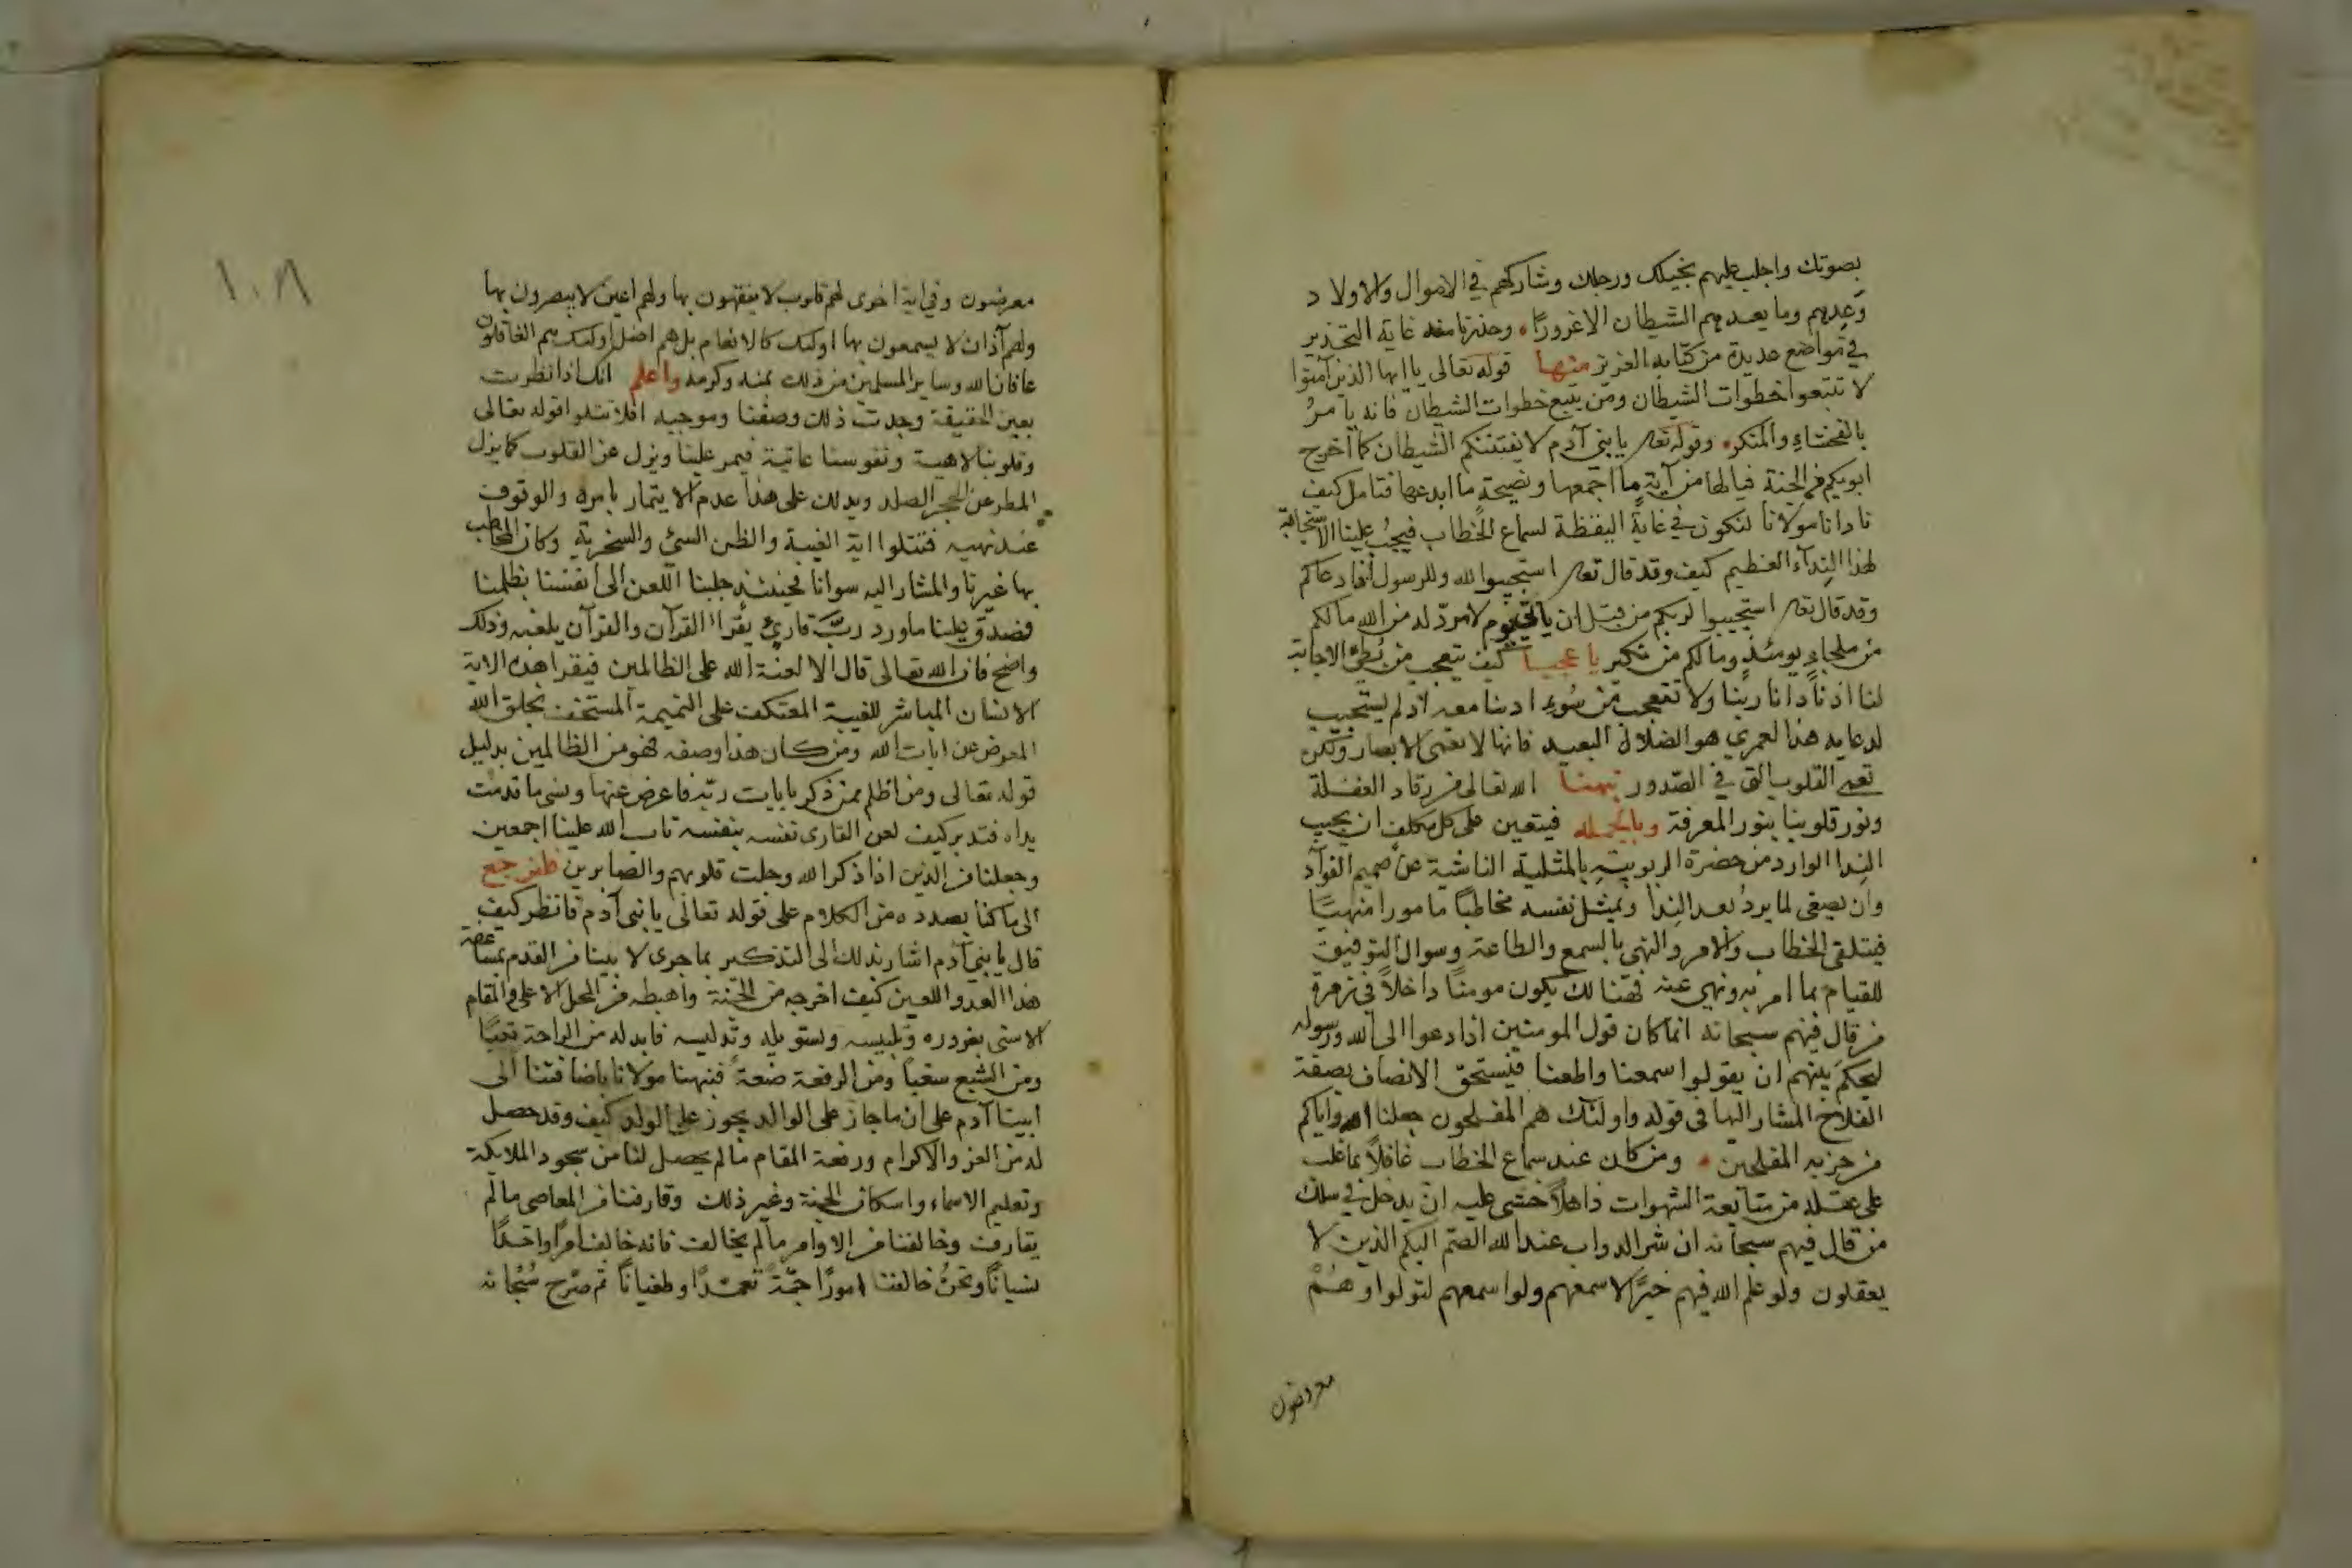 بصوتك واجلب عليهم بخيلك ورجلك وشاركهم في الاموال والاولاد
وَعِدهم وما يعدهم الشيطان الا غرورًا وحذرنا منه غاية التحذير
في مواضع عديدة من كتابه العزيز منها قوله تعالى يا ايها الذين آمنوا
لا تتبعوا خطوات الشيطان ومن يتبع خطوات الشيطان فانه يامرُ
بالفحشاءِ والمنكر وقوله تعه يا بني آدم لا يفتننكم الشيطان كما اخرج
ابويكم من الجنة فيا لها من آيةٍ ما اجمعها ونصيحةٍ ما ابدعها فتامل كيف
نادانا مولانا لنكون في غاية اليقظة لسماع الخطاب فيجبُ علينا الاستجابة
لهذا النِدآء العظيم كيف وقد قال تعه استجيبوا لله وللرسول اذا دعاكم
وقد قال تعه استجيبوا لربكم من قبل ان ياتي يوم لا مردّ له من الله مالكم
من ملجاءٍ يومئذٍ ومالكم من نكير يا عجبا كيف يتعجب من بُطئ الاجابة
لنا اذ نادانا ربنا ولا تتعجب من سُوءِ ادبنا معه اذ لم يستجيب
لدعايه هذا لعمري هو الضلال البعيد فانها لا تعمى الابصار ولكن
تعمى القلوب التي في الصّدور نبهنا الله تعالى من رقاد الغفلة
ونور قلوبنا بنور المعرفة وبالجمله فيتعين على كل مكلف ان يجيب
النِدا الوارد من حضرة الربوبيةِ بالمثلية الناشية عن صميم الفوآد
وان يصغى لما يردُ بعد النِدا ويمثل نفسه مخاطبًا مامورا منهيًّا
فيتلقى الخطاب والامر والنهى بالسمع والطاعة وسوال التوفيق
للقيام بما امر به ونهى عنه فهنالك يكون مومنًا داخلاً في زمرة
من قال فيهم سبحانه انما كان قول المومنين اذا دعوا الى الله ورسوله
ليحكمَ بينهم ان يقولوا سمعنا واطعنا فيستحق الاتصاف بصفة
الفلاح المشار اليها في قوله واولئك هم المفلحون جعلنا الله واياكم
من حزبه المفلحين ومن كان عند سماع الخطاب غافلاً بما غلب
على عقله من متابعة الشهوات ذاهلاً خشى عليه ان يدخل في سلك
من قال فيهم سبحانه ان شر الدواب عند الله الصّم البكم الذين لا
يعقلون ولو علم الله فيهم خيرًا لاسمعهم ولو اسمعهم لتولوا وهُمْ
معرضون
١٠٨
معرضون وفي اية اخرى لهم قلوب لا يفقهون بها ولهم اعين لا يبصرون بها
ولهم آذان لا يسمعون بها اولئك كالانعام بل هم اضل اولئك هم الغافلون
عافانا الله وساير المسلمين من ذلك بمنه وكرمه واعلم انك اذا نظرت
بعين الحقيقة وجدت ذلك وصفنا وموجبه افلا نتلوا قوله تعالى
وقلوبنا لاهية ونفوسنا عاتية فيمر علينا ويزل عن القلوب كما يزل
المطر عن الحجر الصلد ويدلك على هذا عدم الايتمار بامره والوقوف
عند نهيه فنتلوا اية الغيبة والظن السيّ والسخرية وكان المخاطب
بها غيرنا والمشار اليه سوانا فحينئذ جلبنا اللعن الى انفسنا بظلمنا
فصدق علينا ما ورد ربَّ قارئٍ يقرأ القرآن والقرآن يلعنه وذلك
واضح فان الله تعالى قال الا لعنة الله على الظالمين فيقرا هذه الاية
الانسان المباشر للغيبة المعتكف على النميمة المستخف بخلق الله
المعرض عن ايات الله ومن كان هذا وصفه فهو من الظالمين بدليل
قوله تعالى ومن اظلم ممن ذكر بايات ربّه فاعرض عنها ونسى ما قدمت
يداه فتدبر كيف لعن القارى نفسه بنفسه تاب الله علينا اجمعين
وجعلنا من الذين اذا ذكر الله وجلت قلوبهم والصابرين فلنرجع
الى ما كنا بصدده من الكلام على قوله تعالى يا بني آدم فانظر كيف
قال يا بني آدم اشار بذلك الى التذكير بما جرى لابينا في القدم بمتابعة
هذا العدو اللعين كيف اخرجه من الجنة واهبطه من المحل الاعلى والمقام
الاسنى بغروره وتلبيسه وتسويله وتدليسه فابدله من الراحة تعبًا
ومن الشبع سغبا ومن الرفعة ضعة فنبهنا مولانا باضافتنا الى
ابينا آدم على ان ما جاز على الوالد يجوز على الولد كيف وقد حصل
له من العز والاكرام ورفعة المقام ما لم يحصل لنا من سجود الملايكة
وتعليم الاسماء واسكان الجنة وغير ذلك وقارفنا من المعاصى ما لم
يقارف وخالفنا من الاوامر ما لم يخالف فانه خالف امرًا واحدًا
نسيانًا ونحنُ خالفنا امورًا جمّة تعمدًا وطغيانًا ثم صرّح سُبْحانه